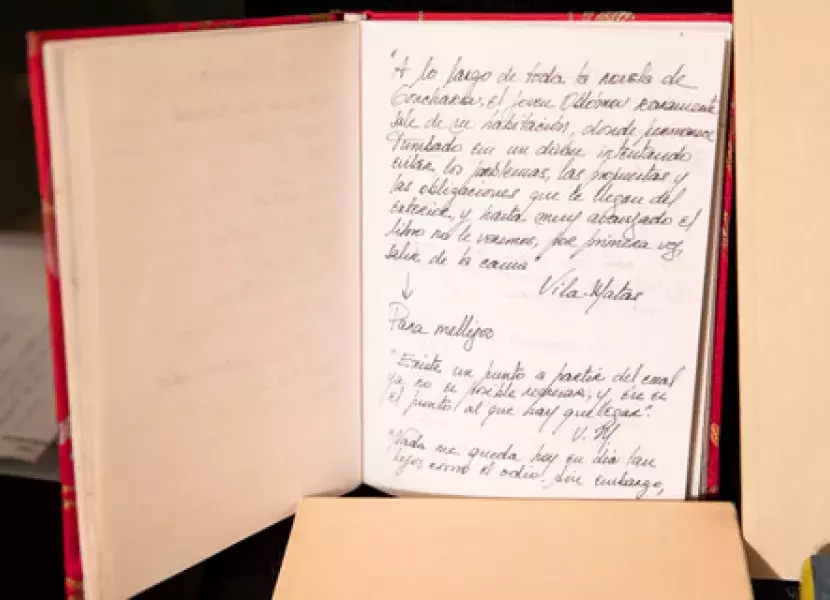 "A lo largo de toda la novela de
Goncharov, el joven Oblómov raramente
sale de su habitación, donde permanece
tumbado en un diván intentando
evitar los problemas, las propuestas y
las obligaciones que le llegan del
exterior, y hasta muy avanzado el
libro no le veremos, por primera vez,
salir de la cama"
Vila-Matas
↓
Para mellizos
"Existe un punto a partir del cual
ya no es posible regresar, y ése es
el punto al que hay que llegar".
V. M
"Nada me queda hoy en día tan
lejos como el odio. Sin embargo,